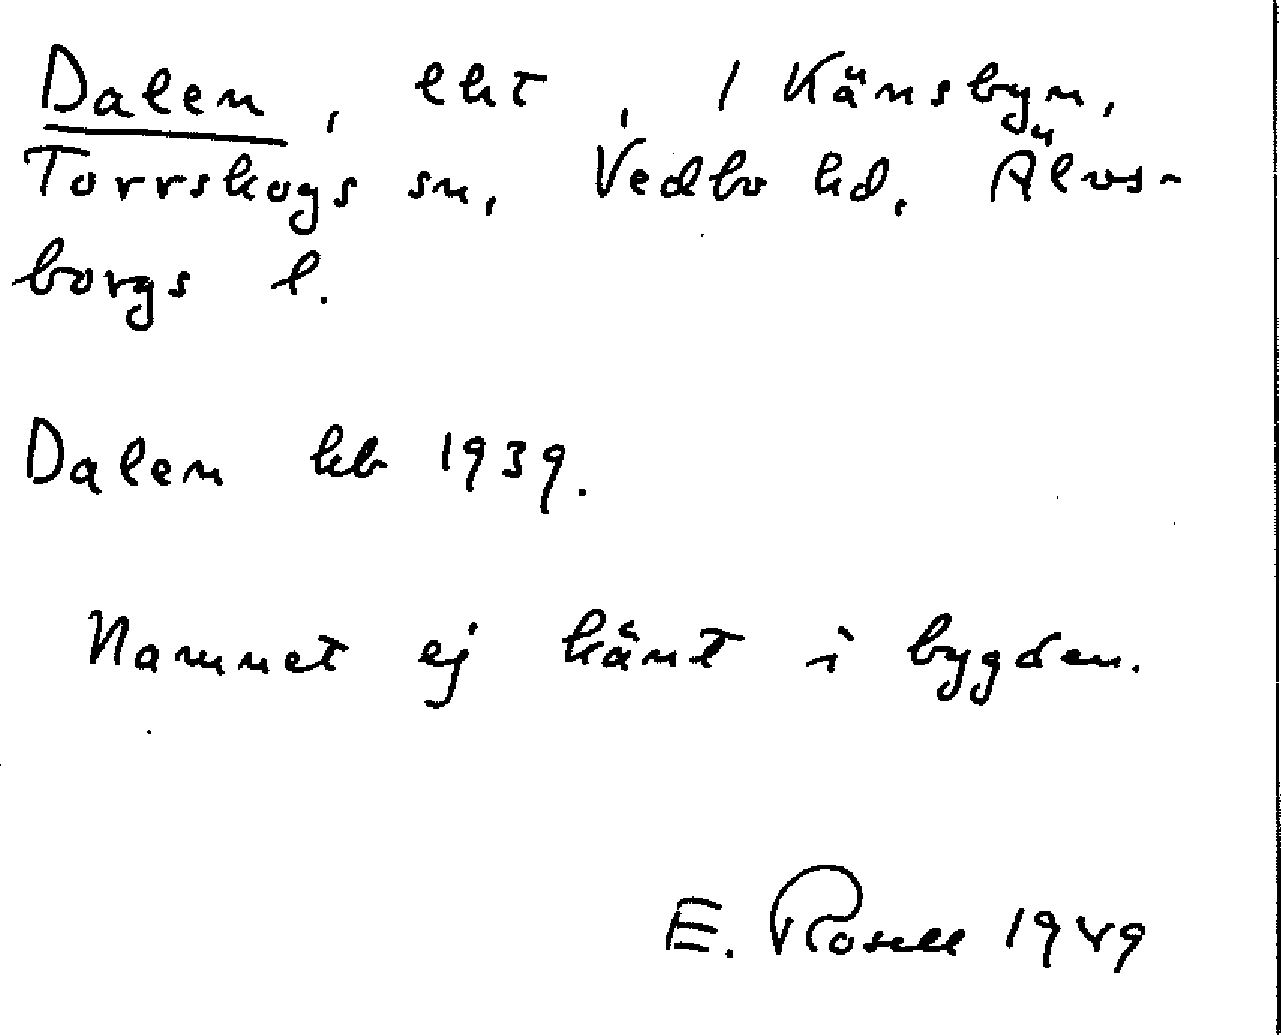 Dalen, lht, 1 Känsbyn,
Torrskogs sn, Vedbo hd, Älvs-
borgs l.
Dalen kb 1939.
Namnet ej känt i bygden.
E. Rosell 1949